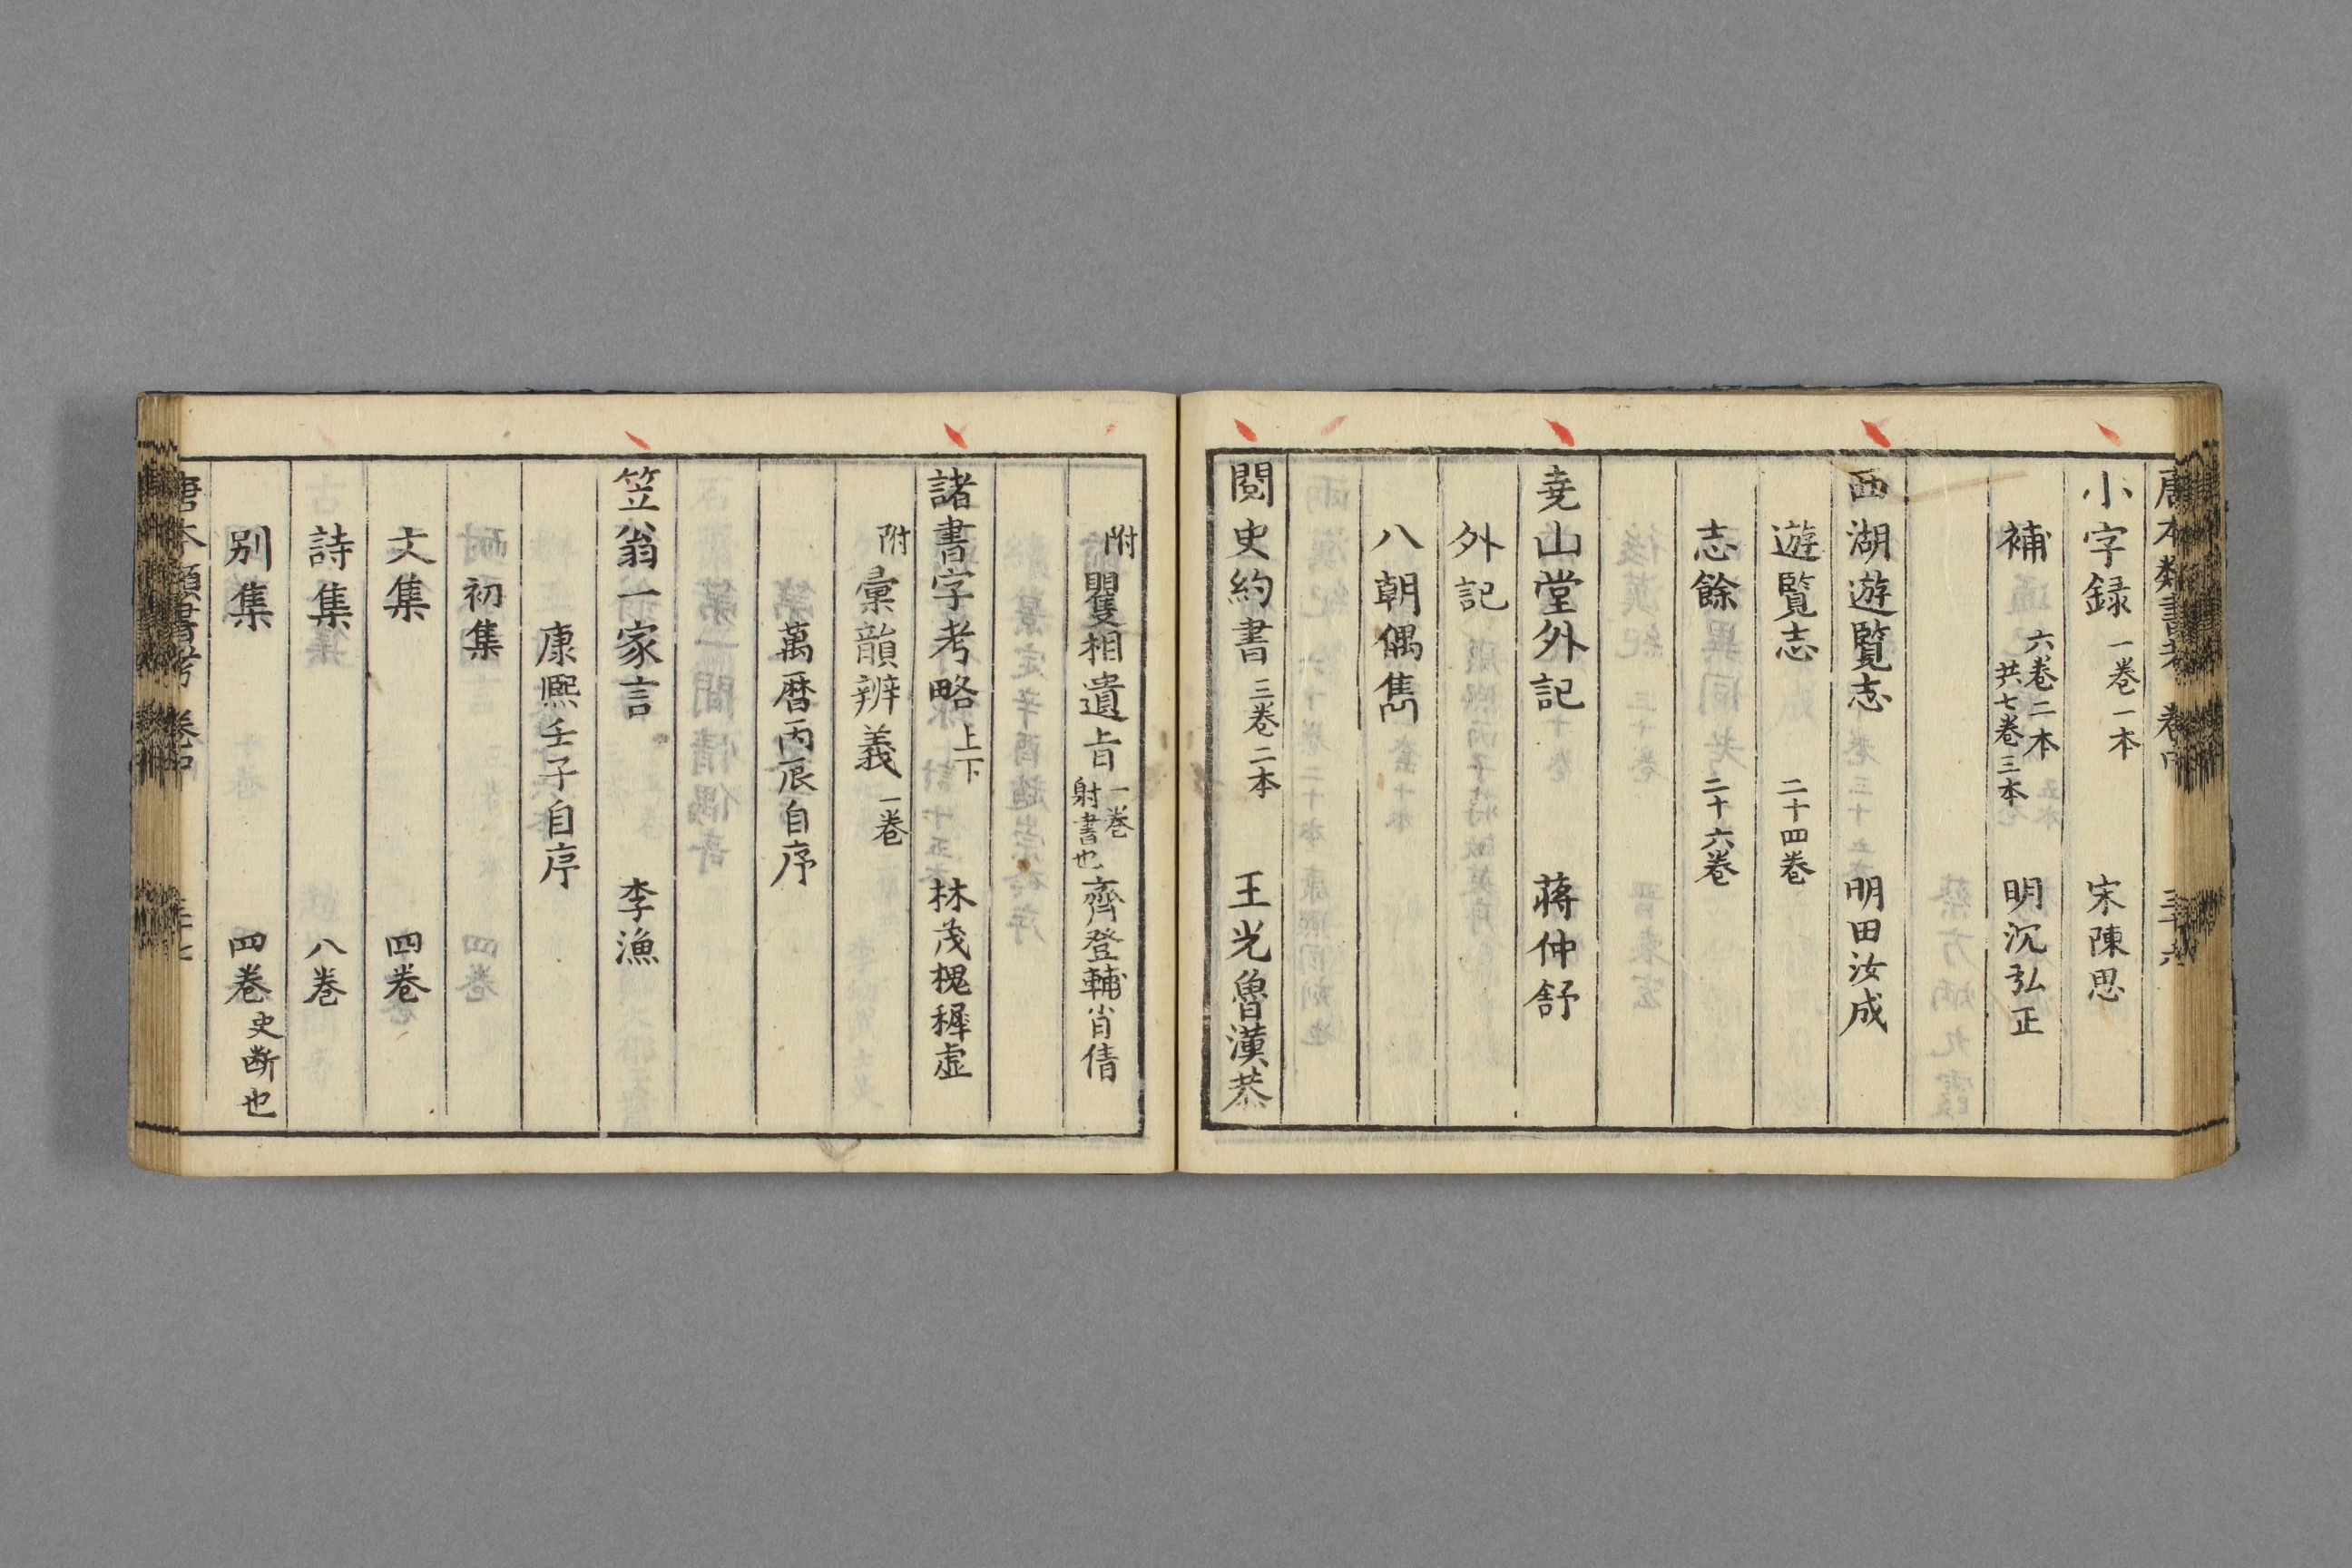 唐本類書考 卷中 三十六
小字録 一卷一本 宋陳思
補 六卷二本 共七卷三本 明沉弘正
西湖遊覧志 明田汝成
遊覧志 二十四卷
志餘 二十六卷
尭山堂外記 蒋仲舒
外記
八朝偶雋
閲史約書 三卷二本 王光魯漢恭
附 矍相遺旨 一卷 射書也 齊登輔肖倩
諸書字考略 上下 林茂槐穉虚
附 彙韻辨義 一卷
萬曆丙辰自序
笠翁一家言 李漁
康熙壬子自序
初集
文集 四卷
詩集 八卷
別集 四卷 史断也
唐本類書考 卷中 三十七